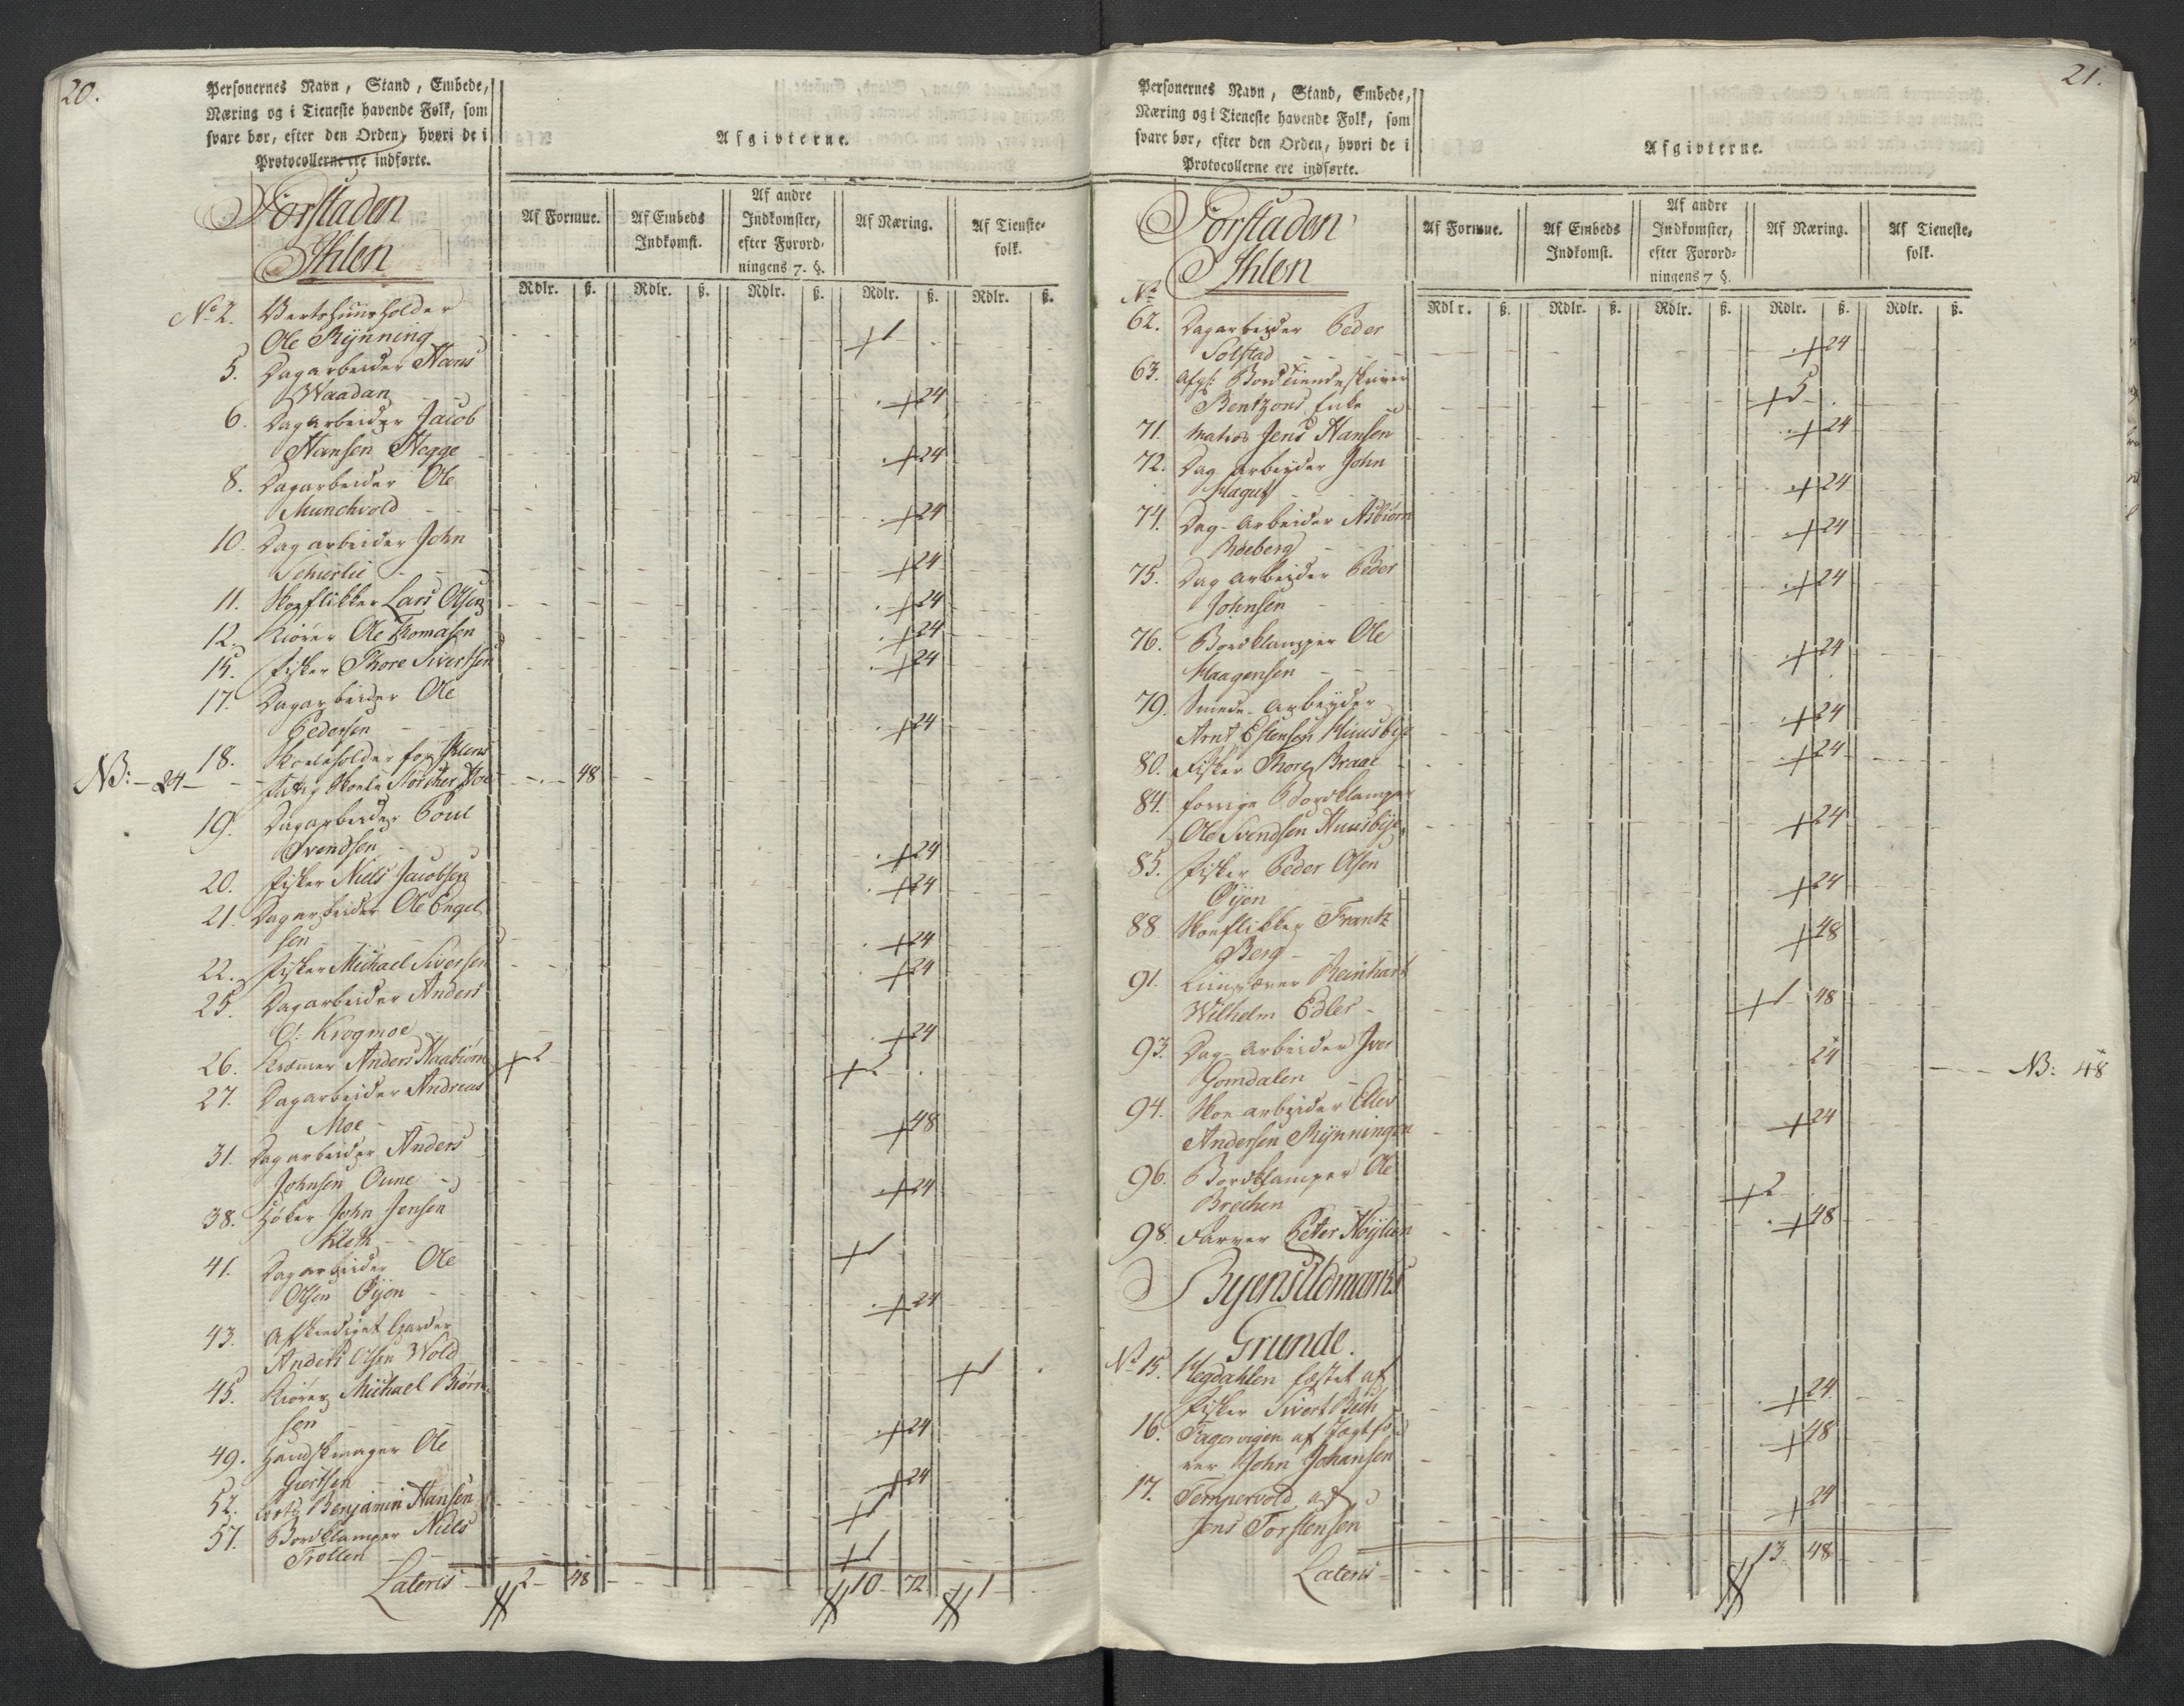 20.
Personernes Navn, Stand, Embede,
Næring og i Tieneste havende Folk, som
svare bør, efter den Orden, hvori de i
Protocollerne ere indførte.
Afgivterne.
Forstaden
Ihlen
Af Formue.
Af Embeds
Indkomst.
Af andre
Indkomster,
efter Forord-
ningens 7. §.
Af Næring.
Af Tieneste-
folk.
Rdlr. ß. Rdlr. ß. Rdlr. ß. Rdlr. ß. Rdlr. ß.
No 2. Vertshuusholder
Ole Rÿnning 1
5. Dagarbeider Hans
Waadan 24
6. Dagarbeider Jacob
Hansen Hegge 24
8. Dagarbeider Ole
Munchvold 24
10. Dagarbeider John
Schierlie 24
11. Skoeflikker Lars Olsen 24
12. Kiører Ole Thomasen 24
15. Fisker Thore Siversen 24
17. Dagarbeider Ole
Pedersen 24
18. Skoleholder for
NB: - 24 - Skole 48
19. Dagarbeider Poul
Svendsen 24
20. Fisker Niels Jacobsen 24
21. Dagarbeider Ole Engel
sen 24
22. Fisker Michael Siversen 24
25. Dagarbeider Anders
O: Krogmoe 24
26. Kræmer Anders Haabiørn 2 2
27. Dagarbeider Andreas
Moe 48
31. Dagarbeider Anders
Johnsen Oune 24
38. Høker John Jensen
Kleth 1
41. Dagarbeider Ole
Olsen Øÿen 24
43. Afskeediget Garder
Anders Olsen Wold 1
45. Kiører Michael Biørn-
sen 24
49. Handskemager Ole
Giertsen 24
52. Benjamin Hansen 1
57. Bordklamper Niels
Trollen 1
Lateris 2 48 10 72 1
21.
Personernes Navn, Stand, Embede,
Næring og i Tieneste havende Folk, som
svare bør, efter den Orden, hvori de i
Protocollerne ere indførte.
Afgivterne.
Forstaden
Ihlen
Af Formue.
Af Embeds
Indkomst.
Af andre
Indkomster,
efter Forord-
ningens 7 §.
Af Næring.
Af Tieneste-
folk.
Rdlr. ß. Rdlr. ß. Rdlr. ß. Rdlr. ß. Rdlr. ß.
No
62. Dagarbeider Peder
Solstad 24
63. Afgl: Bordtiendeskriver
Bentzons Enke 5
71. Matros Jens Hansen 24
72. Dag arbeyder John
24
74. Dag-Arbeider Asbiørn
Roeberg 24
75. Dag Arbeider Peder
Johnsen 24
76. Bordklamper Ole
Haagensen 24
79. Smede-Arbeyder
Arnt Estensen Huusbÿe 24
80. Fisker Thore Braae 24
84. forrige Bordklamper
Ole Svendsen Huusbÿe 24
85. Fisker Peder Olsen
Øÿen 24
88. Skoeflikker Frantz
Berg 48
91. Reinhart
Wilhelm Edler 1 48
93. Dag-Arbeider Iver
Gomdalen 24 NB: 48
94. Skoe arbeider Eller
Andersen Rÿnningen 24
96. Bordklamper Ole
Brechen 2
98. Farver Peter Høÿlien 48
Byens Udmarks
Grunde.
No 15. Hegdahlen fæstet af
Fisker Sivert Bech 24
16. Fagervigen af Jagtfø
rer John Johansen 48
17. Tempervold af
Jens Torstensen 24
Lateris 13 48